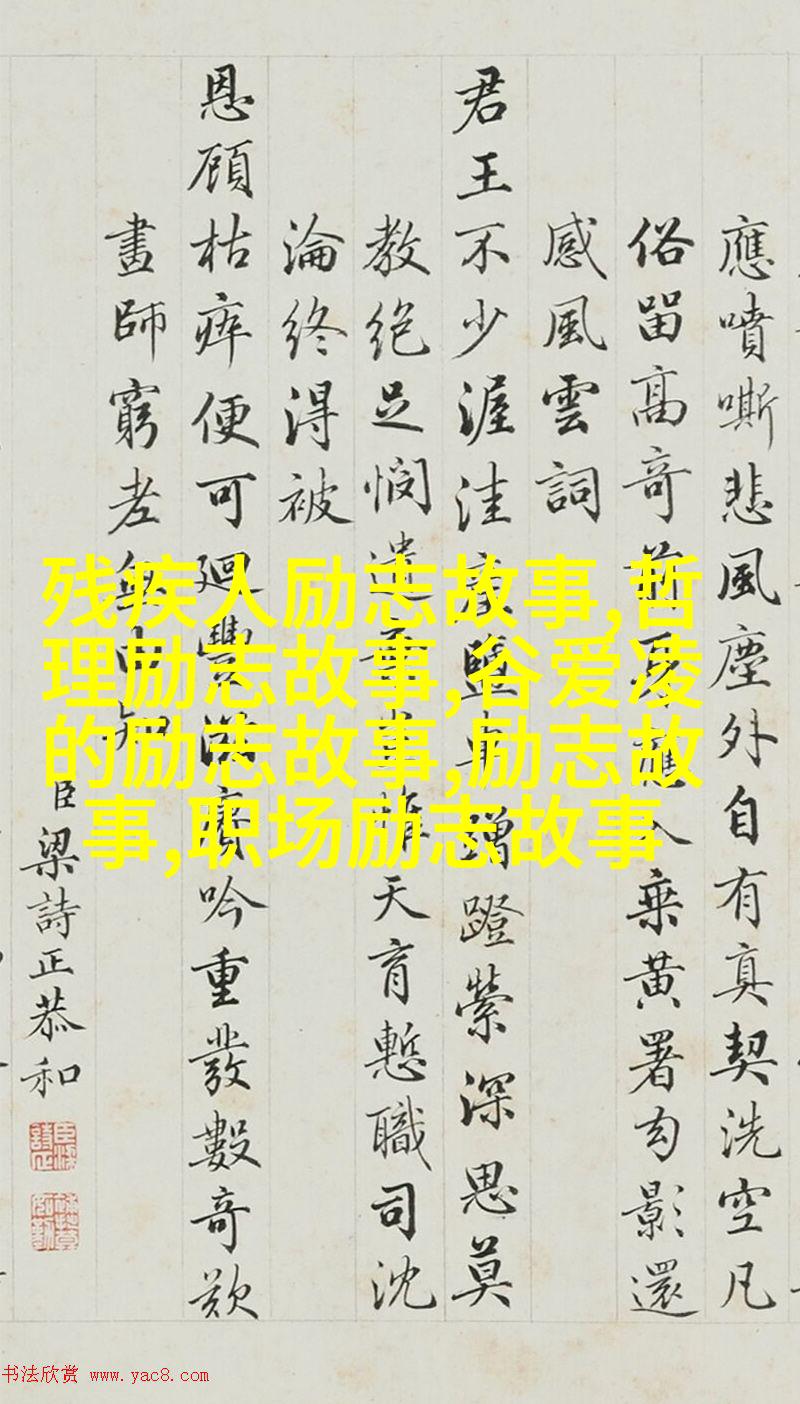 應噴嘶悲風塵外自有真契洗空凡
俗畱高奇前身應入乘黃署勾影還
感風雲詞
君王不少渥洼鹽車蹭蹬縈深思莫
教絕足憫遺天育慙職司沈
淪終得被
恩顧枯瘁便可廻吟重發數奇欻
畫師窮老無由知
臣梁詩正恭和
残疾人励志故事,哲
理励志故事,谷爱凌
的励志故事,励志故
事,职场励志故事
书法欣赏 www.yac8.com